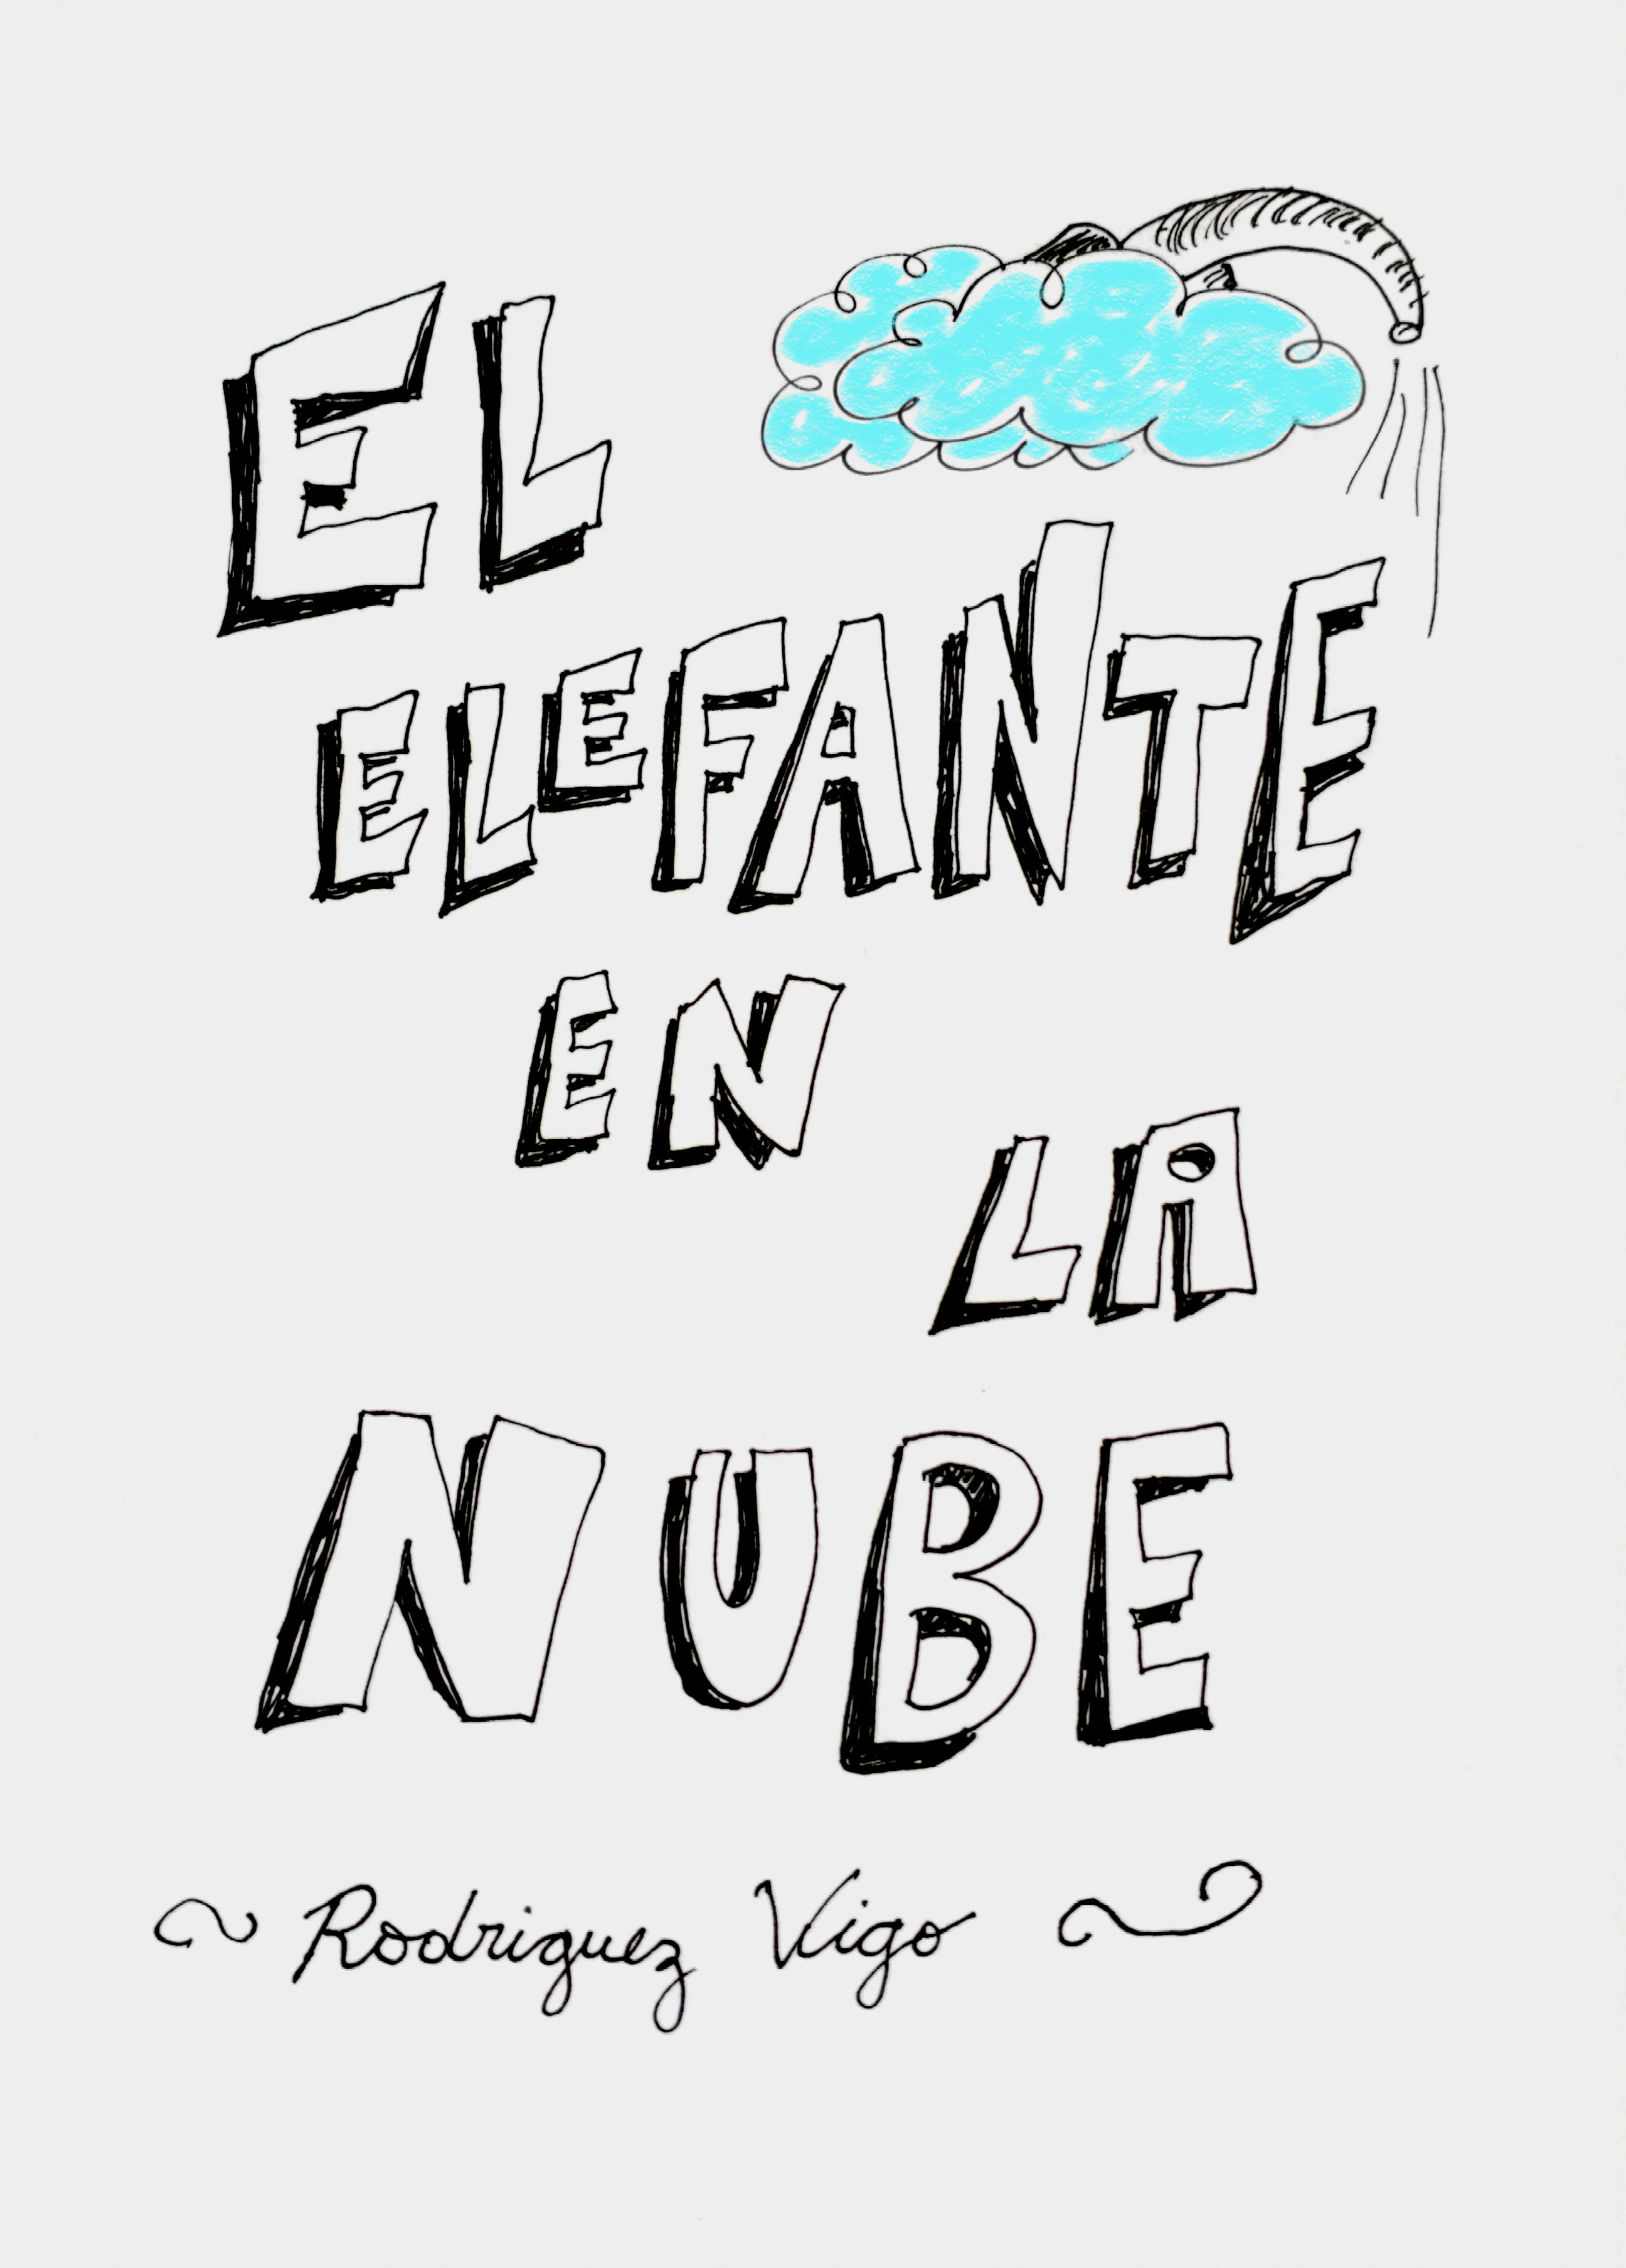 EL
ELEFANTE
EN
LA
NUBE
Rodriguez Vigo